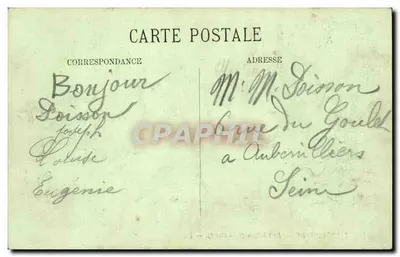 CARTE POSTALE
CORRESPONDANCE
Bonjour
Poisson
Joseph
Louise
Eugénie
ADRESSE
M. M. Poisson
6 rue du Goulet
a Aubervilliers
Seine
CPARAMA